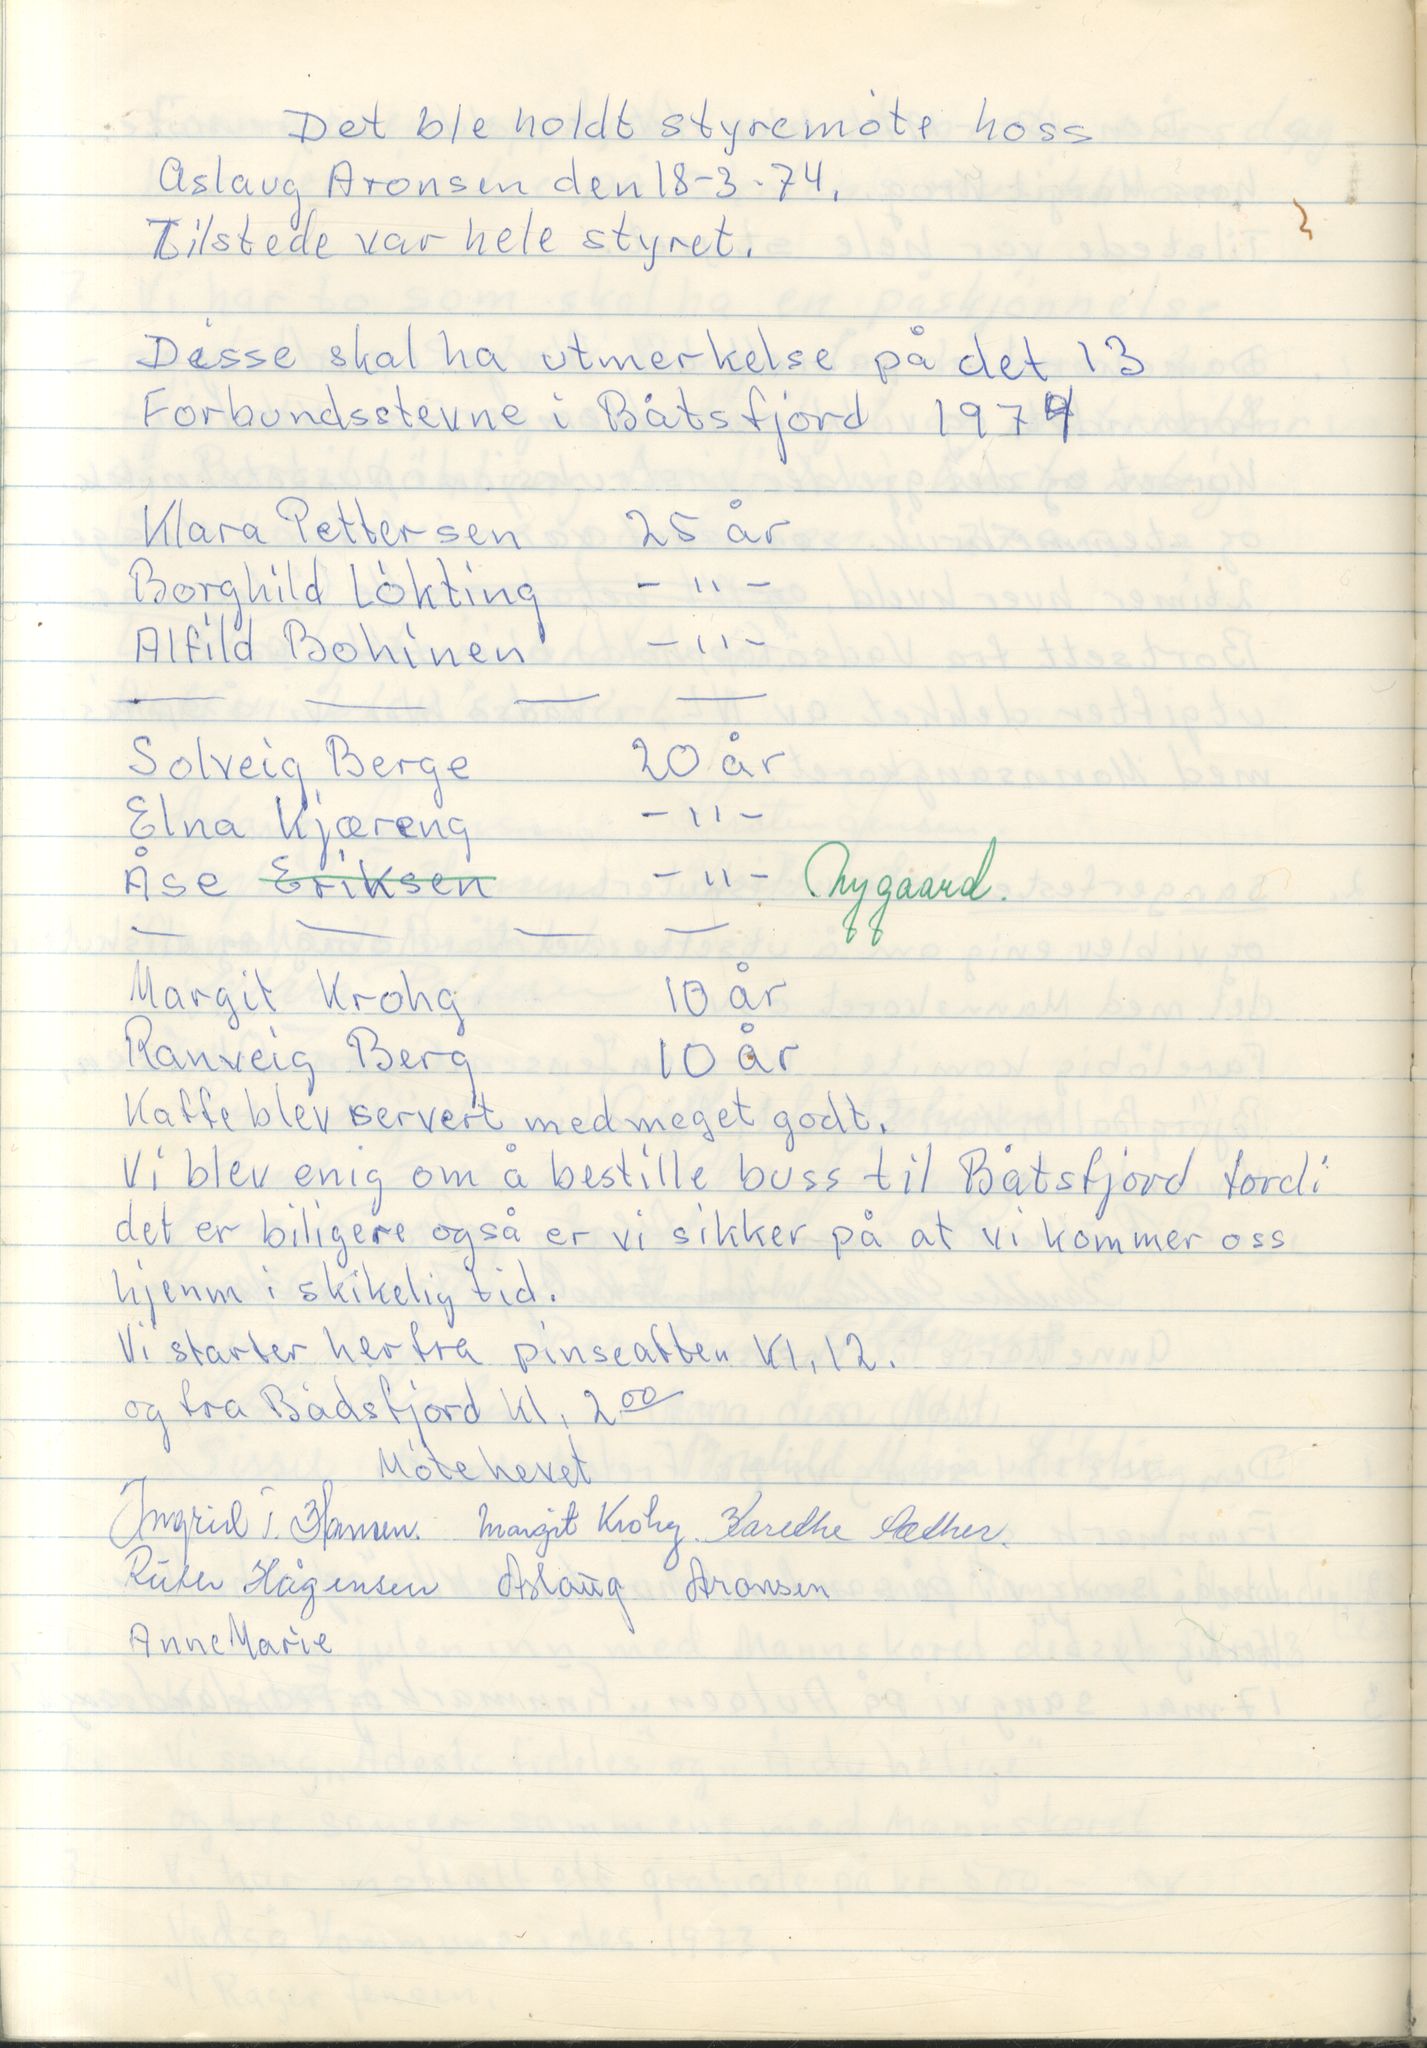 Det ble holdt styremöte hoss
Aslaug Aronsen den 18-3-74.
Tilstede var hele styret.
Disse skal ha utmerkelse på det 13
Forbundsstevne i Båtsfjord 1974
Klara Pettersen 25 år
Borghild Lökting - " -
Alfild Bohinen - " -
Solveig Berge 20 år
Elna Kjæreng - " -
Åse Eriksen - " - Nygaard.
Margit Krohg 10 år
Ranveig Berg 10 år
Kaffe blev servert med meget godt.
Vi blev enig om å bestille buss til Båtsfjord fordi
det er biligere også er vi sikker på at vi kommer oss
hjemm i skikelig tid.
Vi starter herfra pinseaften kl. 12.
og fra Bådsfjord kl. 2⁰⁰
Möte hevet
Ingrid T. Hansen. Margit Krohg. Karethe Sæther.
Hågensen Aslaug Aronsen
Anne Marie